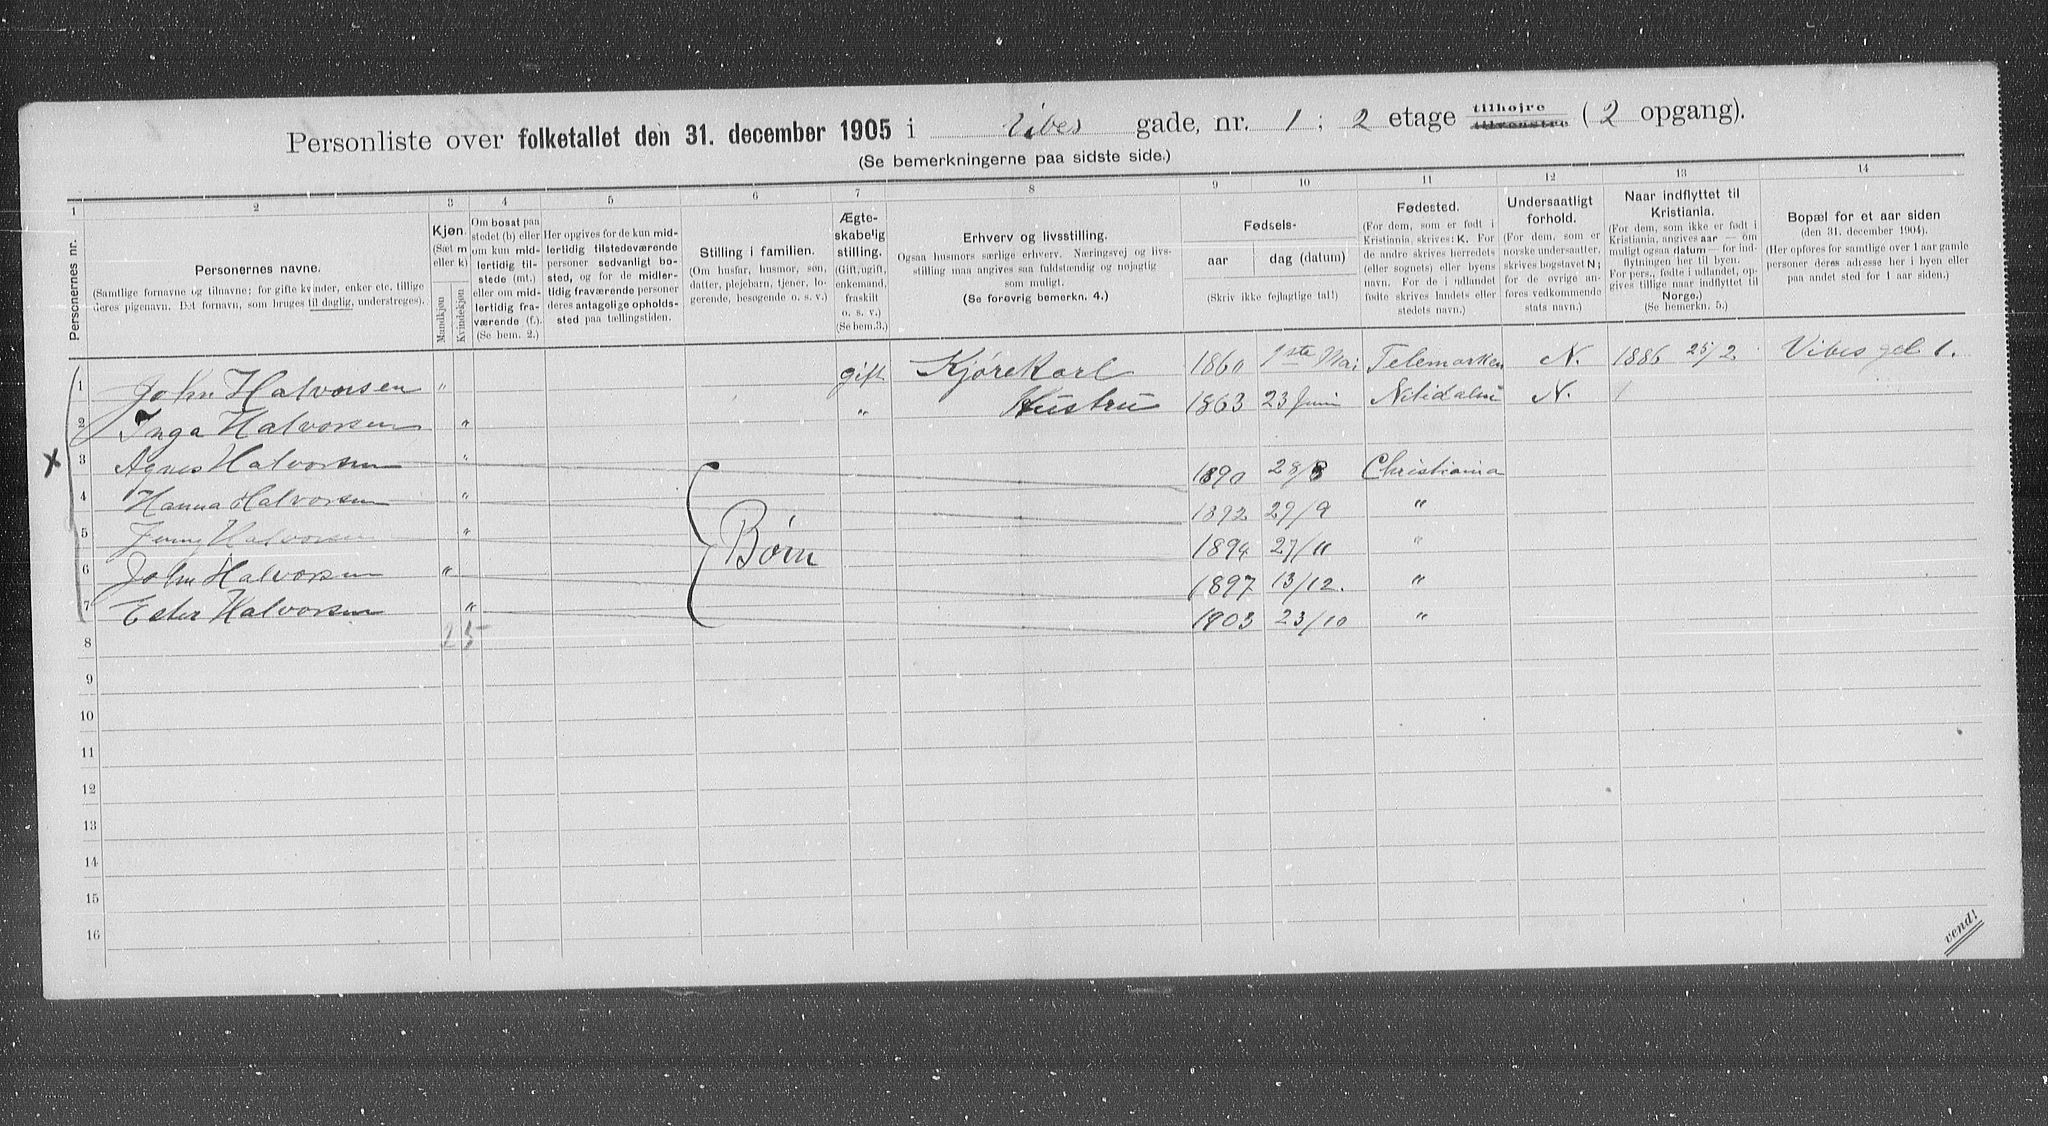 Personliste over folketallet den 31. december 1905 i Vibes gade, nr. 1; 2 etage tilhøjre tilvenstre (2 opgang).
(Se bemerkningerne paa sidste side.)
1 2 3 4 5 6 7 8 9 10 11 12 13 14
Personernes nr.
Personernes navne.
(Samtlige fornavne og tilnavne; for gifte kvinder, enker etc. tillige deres pigenavn. Det fornavn, som bruges til daglig, understreges).
Kjøn.
(Sæt m eller k)
Mandkjøn
Kvindekjøn
Om bosat paa stedet (b) eller om kun midlertidig tilstede (mt.) eller om midlertidig fraværende (f.).
(Se bem. 2.)
Her opgives for de kun midlertidig tilstedeværende personer sedvanligt bosted, og for de midlertidig fraværende personer deres antagelige opholdssted paa tællingstiden.
Stilling i familien.
(Om husfar, husmor, søn, datter, plejebarn, tjener, logerende, besøgende o. s. v.)
Ægteskabelig stilling.
(Gift, ugift, enkemand, fraskilt o. s. v.)
(Se bem.3.)
Erhverv og livsstilling.
Ogsaa husmors særlige erhverv. Næringsvej og livsstilling maa angives saa fuldstændig og nøjagtig som muligt.
(Se forøvrig bemerkn. 4.)
Fødsels-
aar dag (datum)
(Skriv ikke fejlagtige tal!)
Fødested.
(For dem, som er født i Kristiania, skrives: K. For de andre skrives herredets (eller sognets) eller byens navn. For de i udlandet fødte skrives landets eller stedets navn.)
Undersaatligt forhold.
(For dem, som er norske undersaatter, skrives bogstavet N; for de øvrige anføres vedkommende stats navn.)
Naar indflyttet til Kristiania.
(For dem, som ikke er født i Kristiania, angives aar — om muligt ogsaa datum — for indflytningen her til byen.
For pers., fødte i udlandet, opgives tillige naar indflyttet til Norge.)
(Se bemerkn. 5.)
Bopæl for et aar siden
(den 31. december 1904).
(Her opføres for samtlige over 1 aar gamle personer deres adresse her i byen eller paa andet sted for 1 aar siden.)
1 John Halvorsen " gift Kjørekarl 1860 1ste Mai Telemarken N. 1886 25/2 Vibes gd 1.
2 Inga Halvorsen " " Hustru 1863 23 Juni Nitidalen N.
X
3 Agnes Halvorsen " 1890 28/8 Christiania
4 Hanna Halvorsen " 1892 29/9 "
5 Jenny Halvorsen " Børn 1894 27/11 "
6 John Halvorsen " 1897 13/12. "
7 Ester Halvorsen " 1903 23/10 "
8 2 5
9
10
11
12
13
14
15
16
vend!